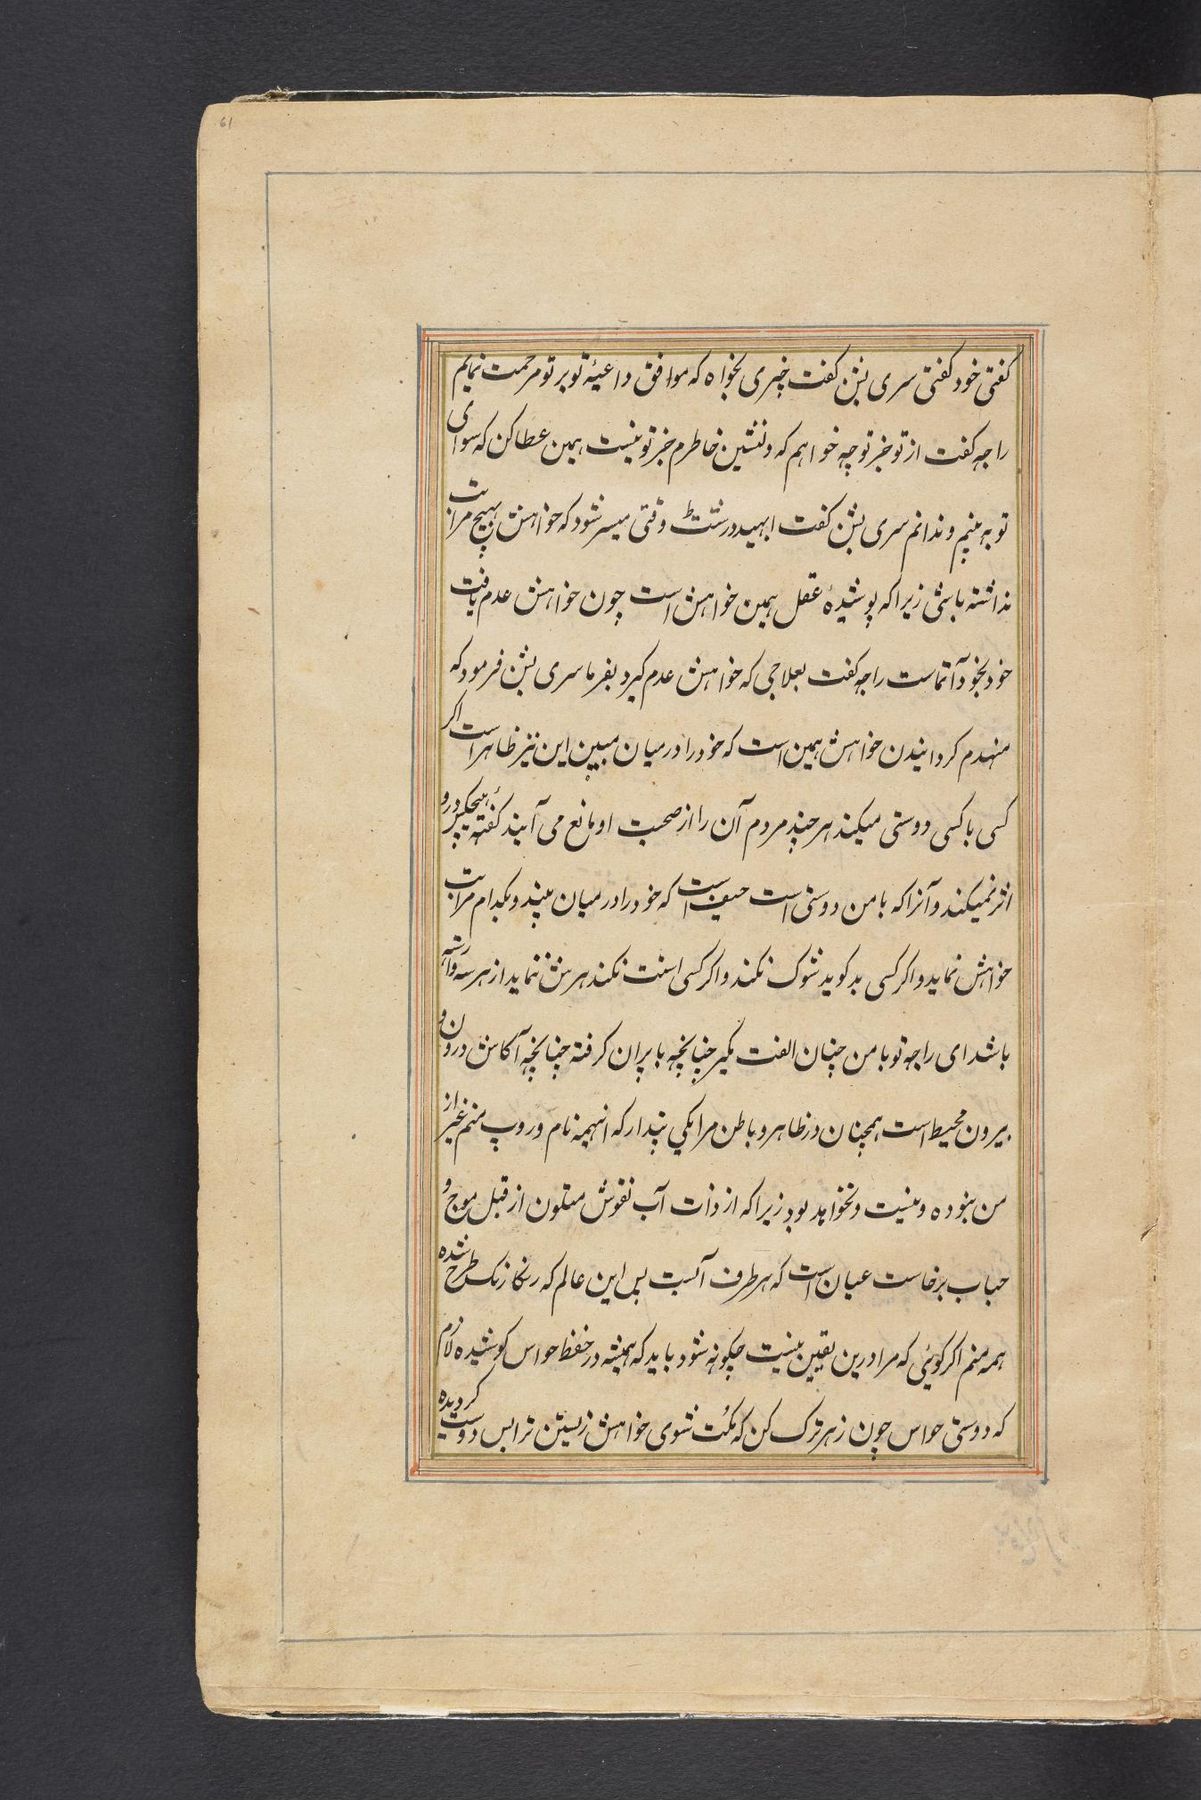 61
کفتی خود کفتی سری بشن کفت چیزی بخواه که موافق داعیهٔ تو بر تو مرحمت نمایم
راجه کفت از تو خبر تو چه خواهم که دلنشین خاطرم خبر تو نیست همین عطا کن که سوای
تو نه بینم و ندانم سری بشن کفت ابهید درشت وقتی میسر شود که خواهش بهیچ مراتب
نداشته باشی زیرا که پوشیدهٔ عقل همین خواهش است چون خواهش عدم یافت
خود بخود آتماست راجه کفت بعلاجی که خواهش عدم کیرد بفرما سری بشن فرمود که
منهدم کردانیدن خواهش همین است که خود را در میان مبین این نیز ظاهر است اکر
کسی با کسی دوستی میکند هر چند مردم آن را از صحبت او مانع می آیند کفتهٔ هیچکس درو
اثر نمیکند و آنرا که با من دوستی است حیف است که خود را در میان بیند و بکدام مراتب
خواهش نماید و اکر کسی بد کوید شوک نکند و اکر کسی استت نکند هرش ننماید از هر سه وارسته
باشد ای راجه تو با من چنان الفت بکیر چنانچه با پران کرفته چنانچه آکاش درون و
بیرون محیط است همچنان در ظاهر و باطن مرا یکی پندار که اینهمه نام و روپ منم غیر از
من نبوده و نیست و نخواهد بود زیرا که از ذات آب نقوش متلون از قبل موج و
حباب برخاست عیان است که هر طرف آبست پس این عالم که رنکارنک طرح شده
همه منم اکر کوئی که مرا درین یقین نیست چکونه شود باید که همیشه در حفظ حواس کوشیده لازم
که دوستی حواس چون زهر ترک کن که مکت شوی خواهش زیستن ترا بس دوست کردیده